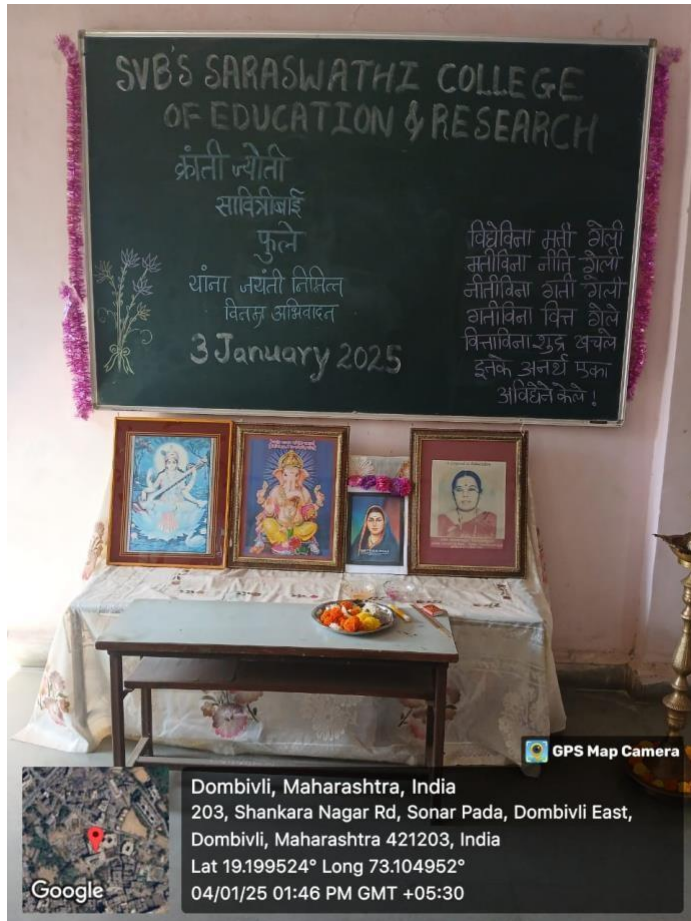 SVB'S SARASWATHI COLLEGE
OF EDUCATION & RESEARCH
क्रांती ज्योती
सावित्रीबाई
फुले
यांना जयंती निमित्त
विनम्र अभिवादन
3 January 2025
विद्येविना मती गेली
मतीविना नीति गेली
नीतीविना गती गेली
गतीविना वित्त गेले
वित्ताविना शुद्र खचले
इतके अनर्थ एका
अविद्येने केले!
GPS Map Camera
Dombivli, Maharashtra, India
203, Shankara Nagar Rd, Sonar Pada, Dombivli East,
Dombivli, Maharashtra 421203, India
Lat 19.199524° Long 73.104952°
04/01/25 01:46 PM GMT +05:30
Google